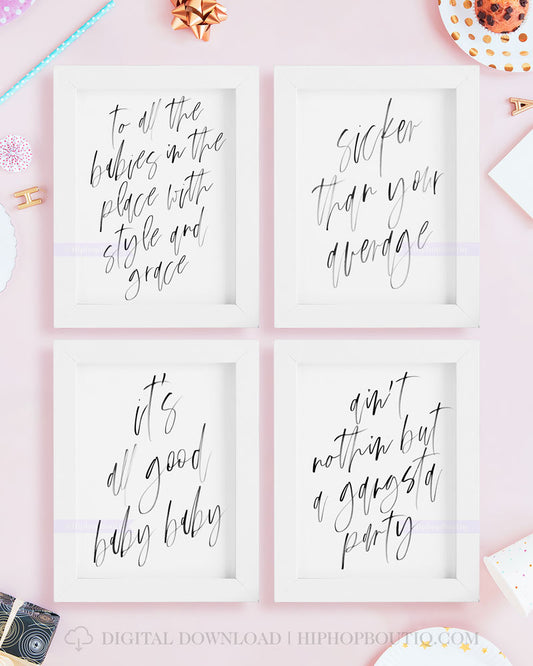 to all the
babies in the
place with
style and
grace
sicker
than your
average
it's
all good
baby baby
ain't
nothin but
a gangsta
party
DIGITAL DOWNLOAD | HIPHOPBOUTIQ.COM